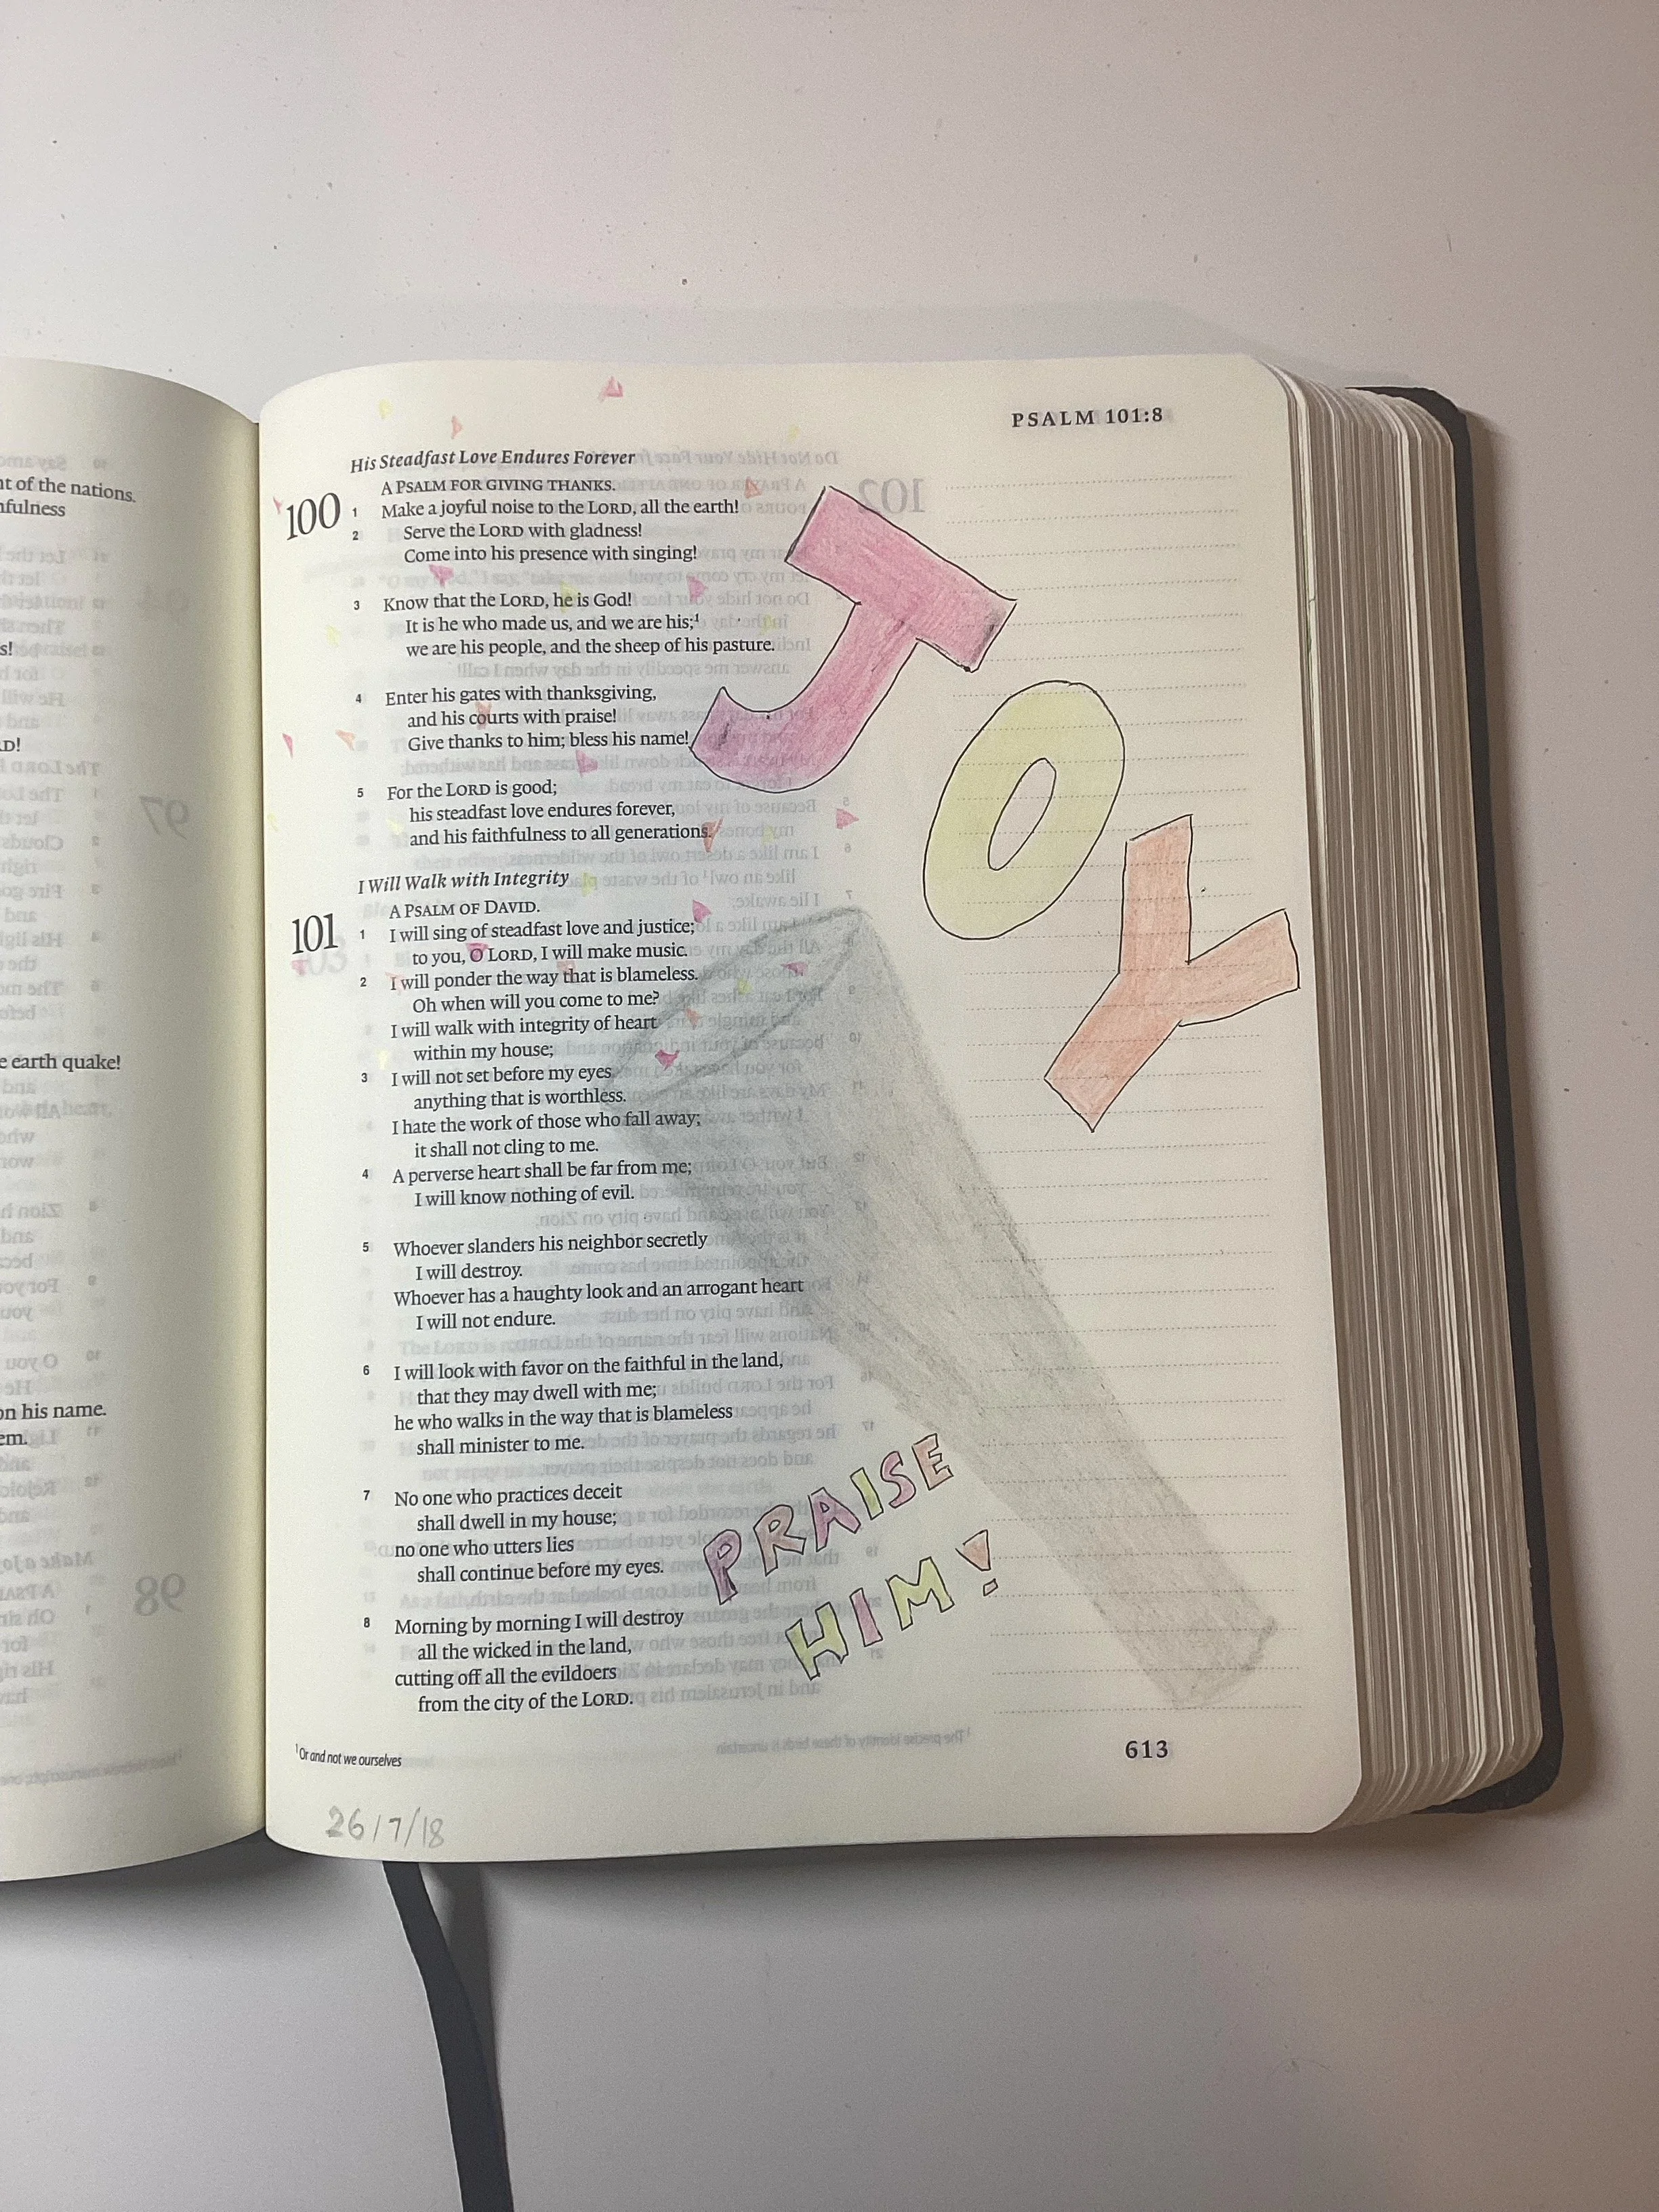 nt of the nations.
nfulness
s!
D!
e earth quake!
on his name.
em.
PSALM 101:8
His Steadfast Love Endures Forever
100
A PSALM FOR GIVING THANKS.
1 Make a joyful noise to the LORD, all the earth!
2 Serve the LORD with gladness!
Come into his presence with singing!
3 Know that the LORD, he is God!
It is he who made us, and we are his;1
we are his people, and the sheep of his pasture.
4 Enter his gates with thanksgiving,
and his courts with praise!
Give thanks to him; bless his name!
5 For the LORD is good;
his steadfast love endures forever,
and his faithfulness to all generations.
I Will Walk with Integrity
101
A PSALM OF DAVID.
1 I will sing of steadfast love and justice;
to you, O LORD, I will make music.
2 I will ponder the way that is blameless.
Oh when will you come to me?
I will walk with integrity of heart
within my house;
3 I will not set before my eyes
anything that is worthless.
I hate the work of those who fall away;
it shall not cling to me.
4 A perverse heart shall be far from me;
I will know nothing of evil.
5 Whoever slanders his neighbor secretly
I will destroy.
Whoever has a haughty look and an arrogant heart
I will not endure.
6 I will look with favor on the faithful in the land,
that they may dwell with me;
he who walks in the way that is blameless
shall minister to me.
7 No one who practices deceit
shall dwell in my house;
no one who utters lies
shall continue before my eyes.
8 Morning by morning I will destroy
all the wicked in the land,
cutting off all the evildoers
from the city of the LORD.
JOY
PRAISE
HIM!
1 Or and not we ourselves
613
26/7/18